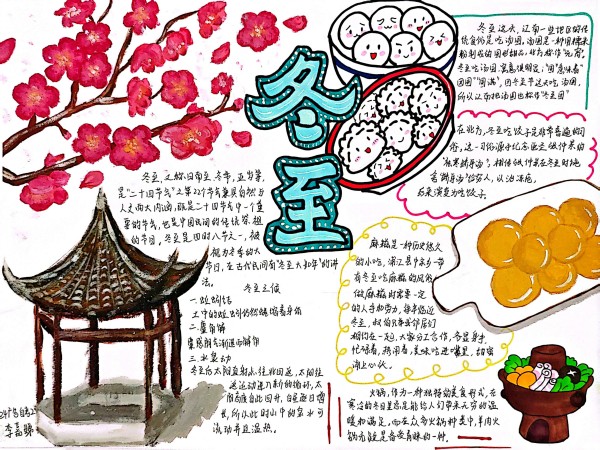 冬至
冬至这天，江南一些地区的传
统食俗是吃汤圆，汤圆是一种用糯米
粉制成的圆形甜品，
冬至吃汤圆，寓意很明显，"圆"意味着
"团圆""圆满"，因冬至这天吃汤圆，
所以人们把汤圆也称作"冬至团"
在北方，冬至吃饺子是非常普遍的习
俗，这一习俗源于纪念医圣张仲景的
"祛寒娇耳汤"，相传张仲景在冬至时施
舍"娇耳汤"给穷人，以治冻疮，
后来演变为吃饺子。
冬至，又称日南至、冬节、亚岁等，
是"二十四节气"之第22个节气，兼具自然与
人文两大内涵，既是二十四节气中一个重
要的节气，也是中国民间的传统祭祖
的节日，冬至是四时八节之一，被
视为冬季的大
节日，在古代民间有"冬至大如年"的讲
法。
冬至三候
一、蚯蚓结
土中的蚯蚓仍然蜷缩着身体
二、麋角解
麋感阴气渐退而解角
三、水泉动
冬至后太阳直射点往北回返，太阳往
返运动进入新的循环，太
阳高度自此回升、白昼逐日增
长，所以此时山中的泉水可
流动并且温热。
麻糍是一种历史悠久
的小吃，浦江县中余乡一带
有冬至吃麻糍的风俗
做麻糍则需要一定
的人手和劳力，每年临近
冬至，叔伯兄弟会邻居们
相约在一起，大家分工合作，各显身手，
忙碌着，热闹着，美味吃进嘴里，甜蜜
涌上心头。
火锅，作为一种独特的美食形式，在
寒冷的冬日里总是能给人们带来无穷的温
暖和满足，而在众多火锅种类中，羊肉火
锅无疑是备受青睐的一种。